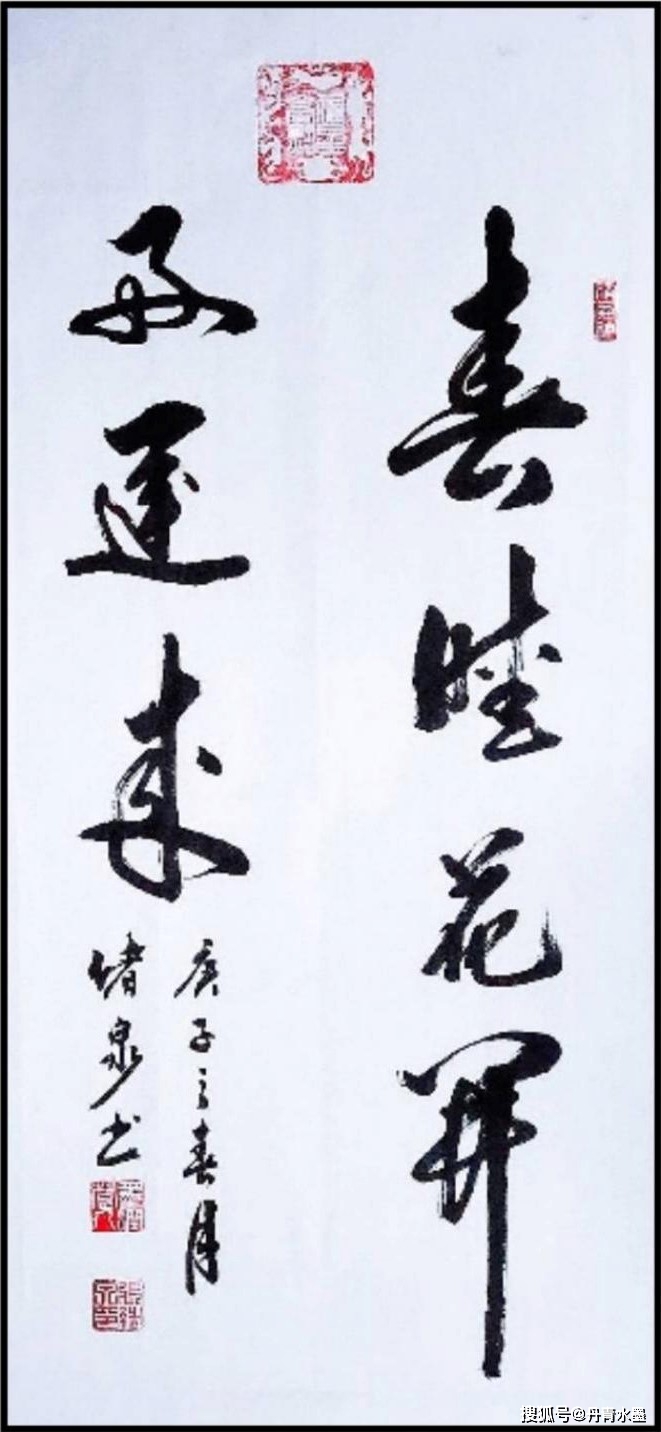 春睦花開
好運来
庚子之春月
绪泉书
搜狐号@丹青水墨